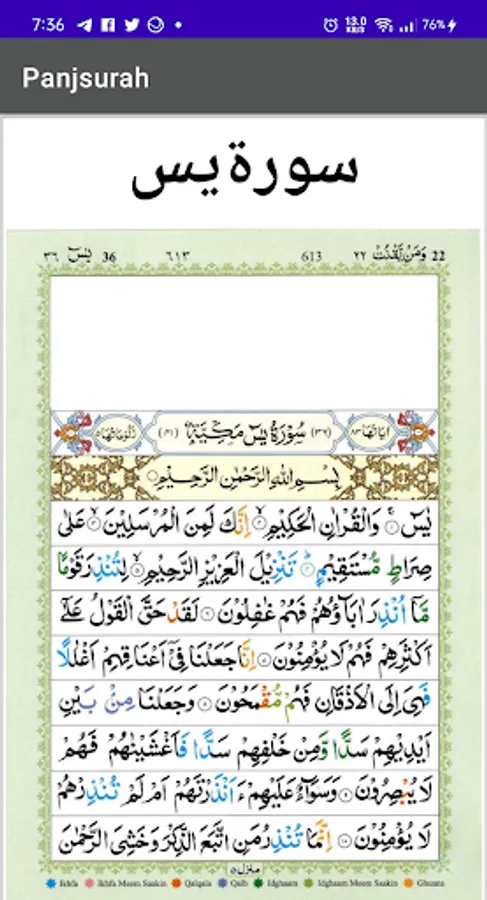 7:36 13.0 KB/S 76%
Panjsurah
سورة يس
22 وَمَنۡ يَّقۡنُتۡ ٢٢ 613 ٦١٣ 36 يٰسٓ ٣٦
اٰيَاتُهَا ٨٣ (٣٦) سُوۡرَةُ يٰسٓ مَكِّيَّةٌ (٤١) رُكُوۡعَاتُهَا ٥
بِسۡمِ اللهِ الرَّحۡمٰنِ الرَّحِيۡمِ
يٰسٓ ۚ وَالۡقُرۡاٰنِ الۡحَكِيۡمِ ۙ اِنَّكَ لَمِنَ الۡمُرۡسَلِيۡنَ ۙ عَلٰى
صِرَاطٍ مُّسۡتَقِيۡمٍ ؕ تَنۡزِيۡلَ الۡعَزِيۡزِ الرَّحِيۡمِ ۙ لِتُنۡذِرَ قَوۡمًا
مَّاۤ اُنۡذِرَ اٰبَآؤُهُمۡ فَهُمۡ غٰفِلُوۡنَ لَقَدۡ حَقَّ الۡقَوۡلُ عَلٰٓى
اَكۡثَرِهِمۡ فَهُمۡ لَا يُؤۡمِنُوۡنَ اِنَّا جَعَلۡنَا فِىۡۤ اَعۡنَاقِهِمۡ اَغۡلٰلًا
فَهِىَ اِلَى الۡاَذۡقَانِ فَهُمۡ مُّقۡمَحُوۡنَ وَجَعَلۡنَا مِنۡۢ بَيۡنِ
اَيۡدِيۡهِمۡ سَدًّا وَّمِنۡ خَلۡفِهِمۡ سَدًّا فَاَغۡشَيۡنٰهُمۡ فَهُمۡ
لَا يُبۡصِرُوۡنَ وَسَوَآءٌ عَلَيۡهِمۡ ءَاَنۡذَرۡتَهُمۡ اَمۡ لَمۡ تُنۡذِرۡهُمۡ
لَا يُؤۡمِنُوۡنَ اِنَّمَا تُنۡذِرُ مَنِ اتَّبَعَ الذِّكۡرَ وَخَشِىَ الرَّحۡمٰنَ
منزل ٥
Ikhfa Ikhfa Meem Saakin Qalqala Qalb Idghaam Idghaam Meem Saakin Ghunna